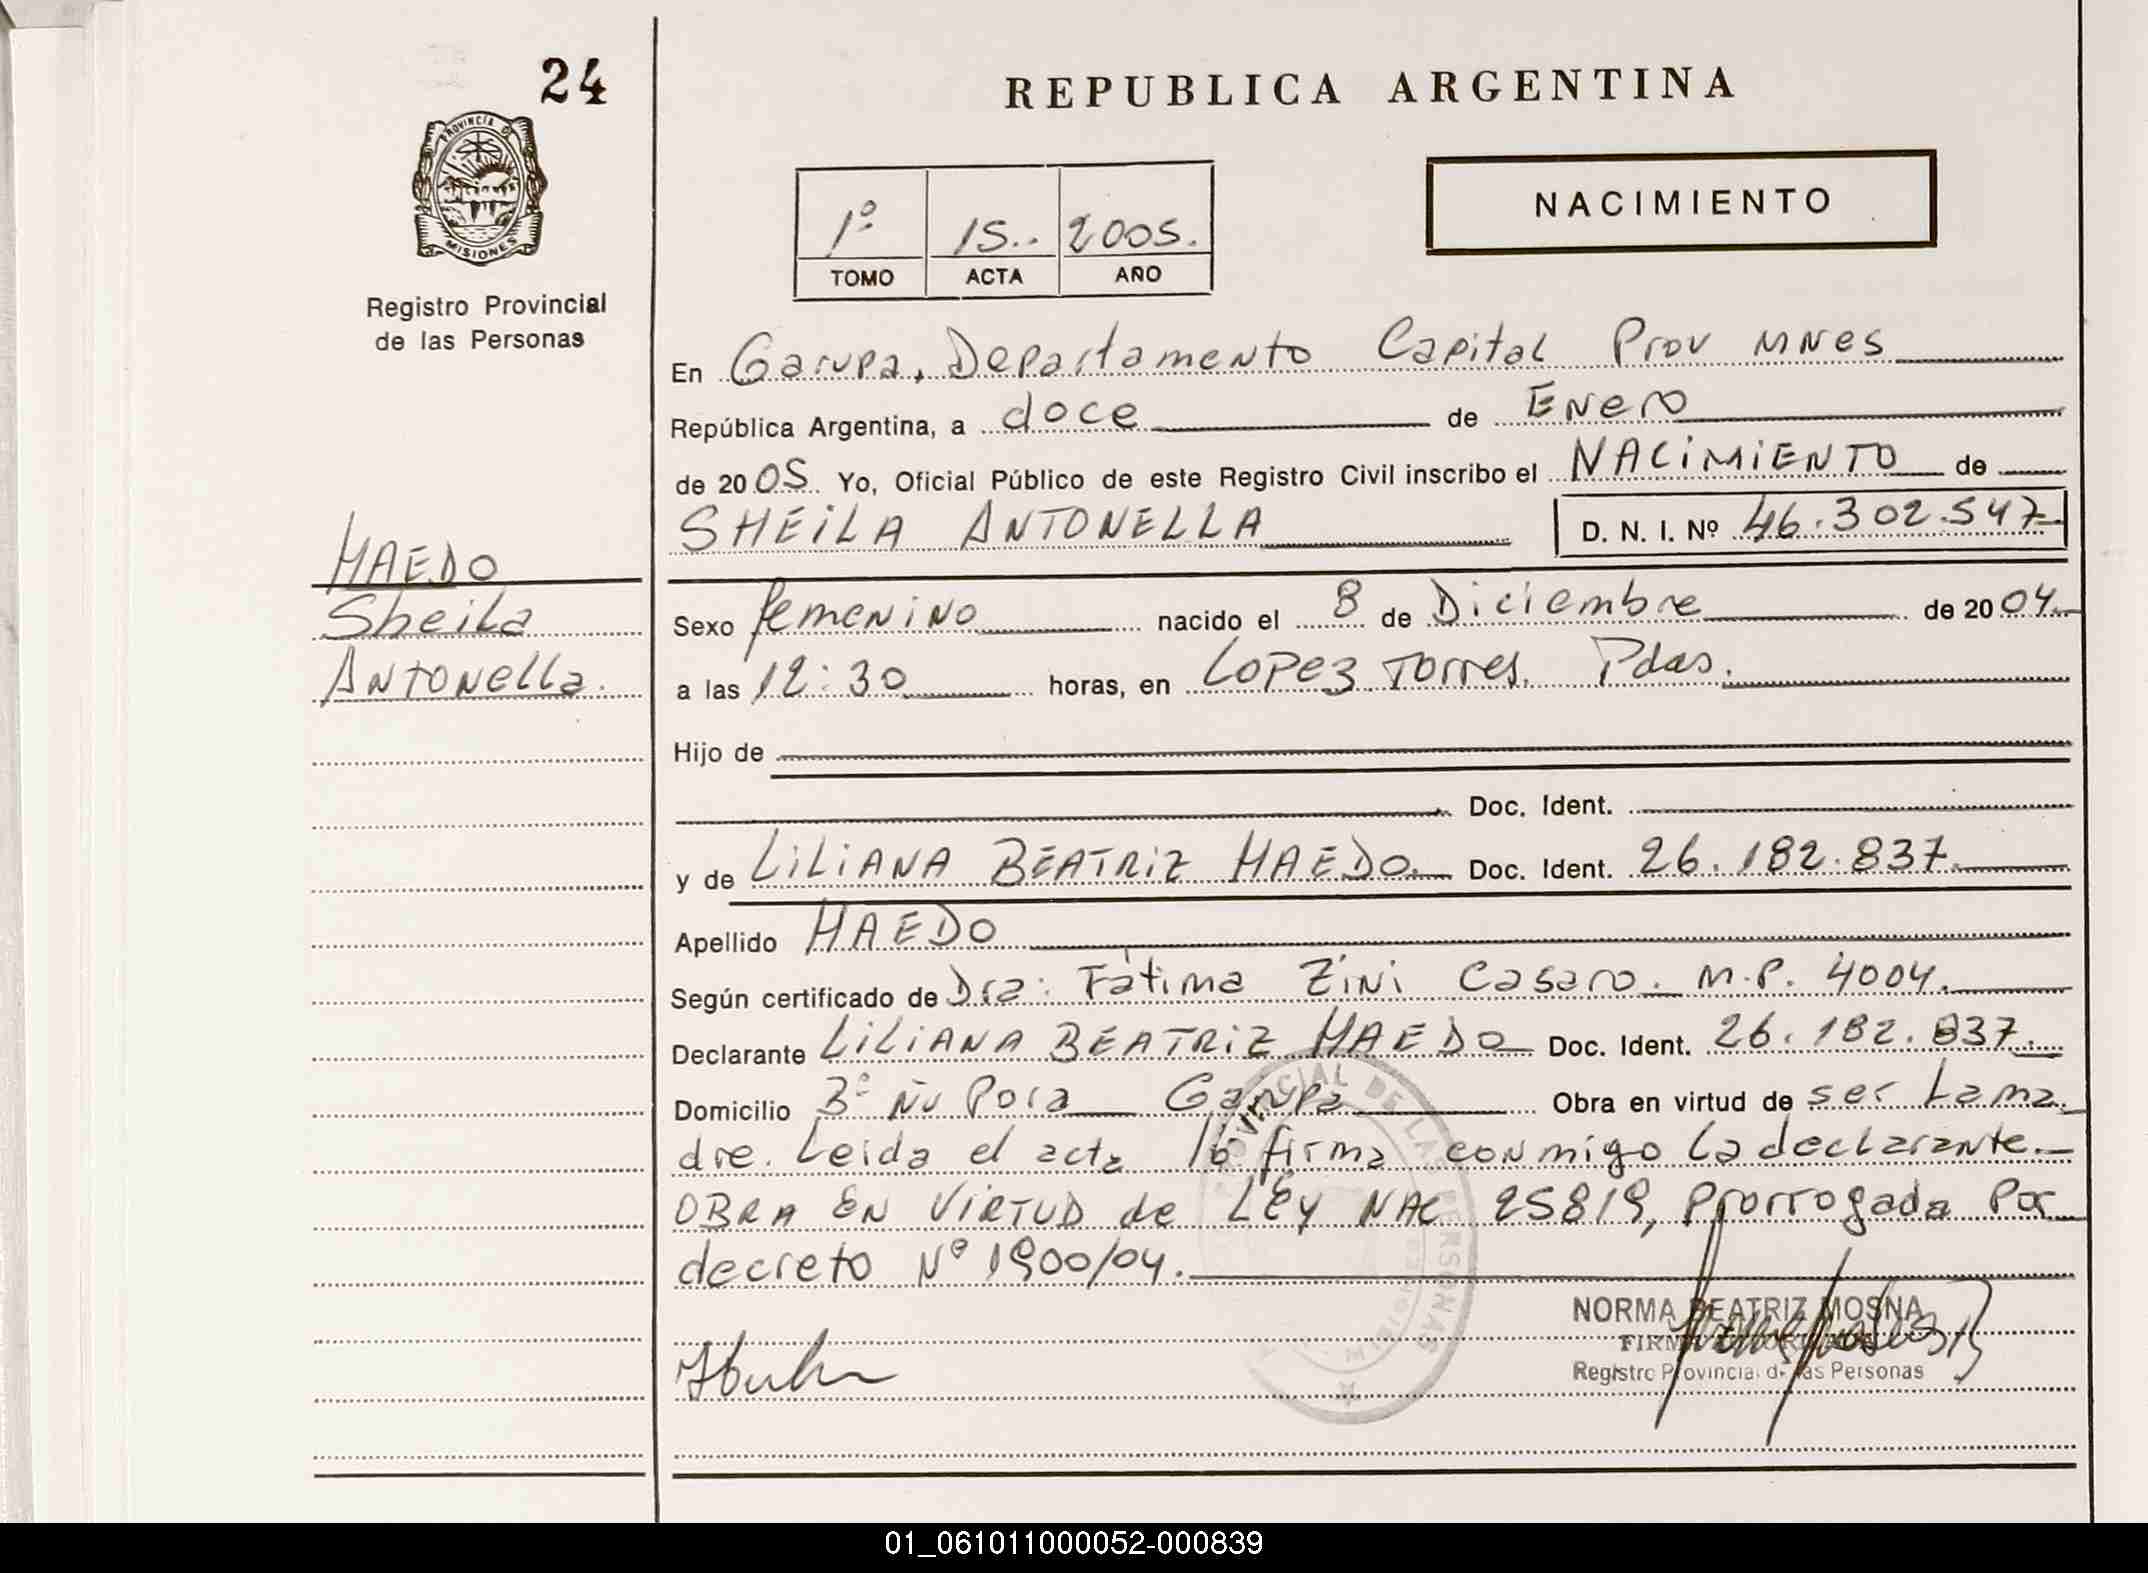 24
PROVINCIA DE
MISIONES
Registro Provincial
de las Personas
REPUBLICA ARGENTINA
1º 15.. 2005.
TOMO ACTA AÑO
NACIMIENTO
En Garupa. Departamento Capital Prov MNes
República Argentina, a doce de Enero
de 2005. Yo, Oficial Público de este Registro Civil inscribo el NACIMIENTO de
SHEILA ANTONELLA D. N. I. Nº 46.302.547
MAEDO
Sheila
Antonella.
Sexo femenino nacido el 8 de Diciembre de 2004
a las 12:30 horas, en Lopez Torres. Pdas.
Hijo de
Doc. Ident.
y de LILIANA BEATRIZ MAEDO. Doc. Ident. 26.182.837.
Apellido MAEDO
Según certificado de Dra: Fátima Zini Casaro. M.P. 4004.
Declarante LILIANA BEATRIZ MAEDO Doc. Ident. 26.182.837.
Domicilio 3º Ñu Pora Garupa Obra en virtud de ser La ma
dre. Leida el acta 16 firma conmigo La declarante.
OBRA EN VIRTUD de LEY NAC 25819, Prorrogada Por
decreto Nº 1900/04.
NORMA BEATRIZ MOSNA
Registro Provincial de las Personas
01_061011000052-000839